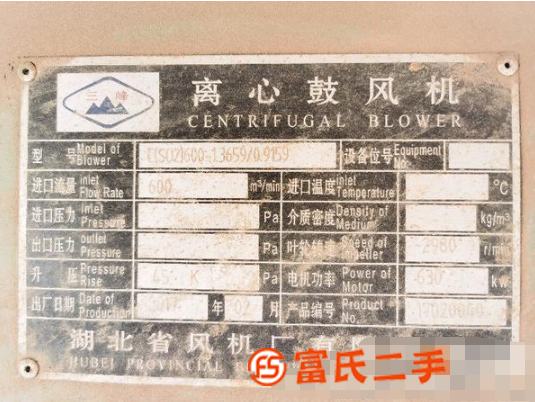 三峰
离心鼓风机
CENTRIFUGAL BLOWER
型 号 Model of Blower C(SO2)600-1.3659/0.9159 设备位号 Equipment No.
进口流量 Inlet Flow Rate 600 m³/min 进口温度 Inlet Temperature °C
进口压力 Inlet Pressure Pa 介质密度 Density of Medium kg/m³
出口压力 outlet Pressure Pa 叶轮转速 Speed of Impeller 2980 r/min
升 压 Pressure Rise 45 K Pa 电机功率 Power of Motor 630 kw
出厂日期 Date of Production 年 02 月 产品编号 Product No.
湖北省风机厂有
HUBEI PROVINCIAL BLOWER
富氏二手